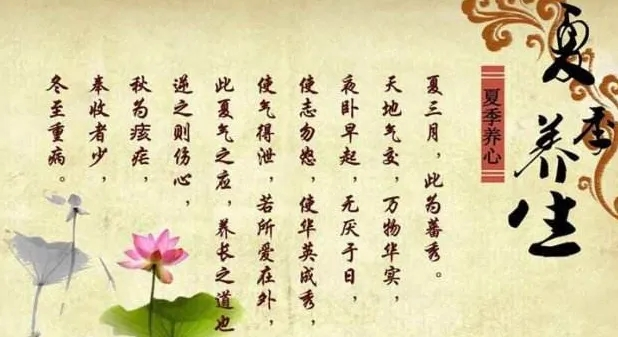 夏季养生
夏季养心
夏三月，此为蕃秀。
天地气交，万物华实，
夜卧早起，无厌于日，
使志勿怒，使华英成秀，
使气得泄，若所爱在外，
此夏气之应，养长之道也
逆之则伤心，
秋为痎疟，
奉收者少，
冬至重病。